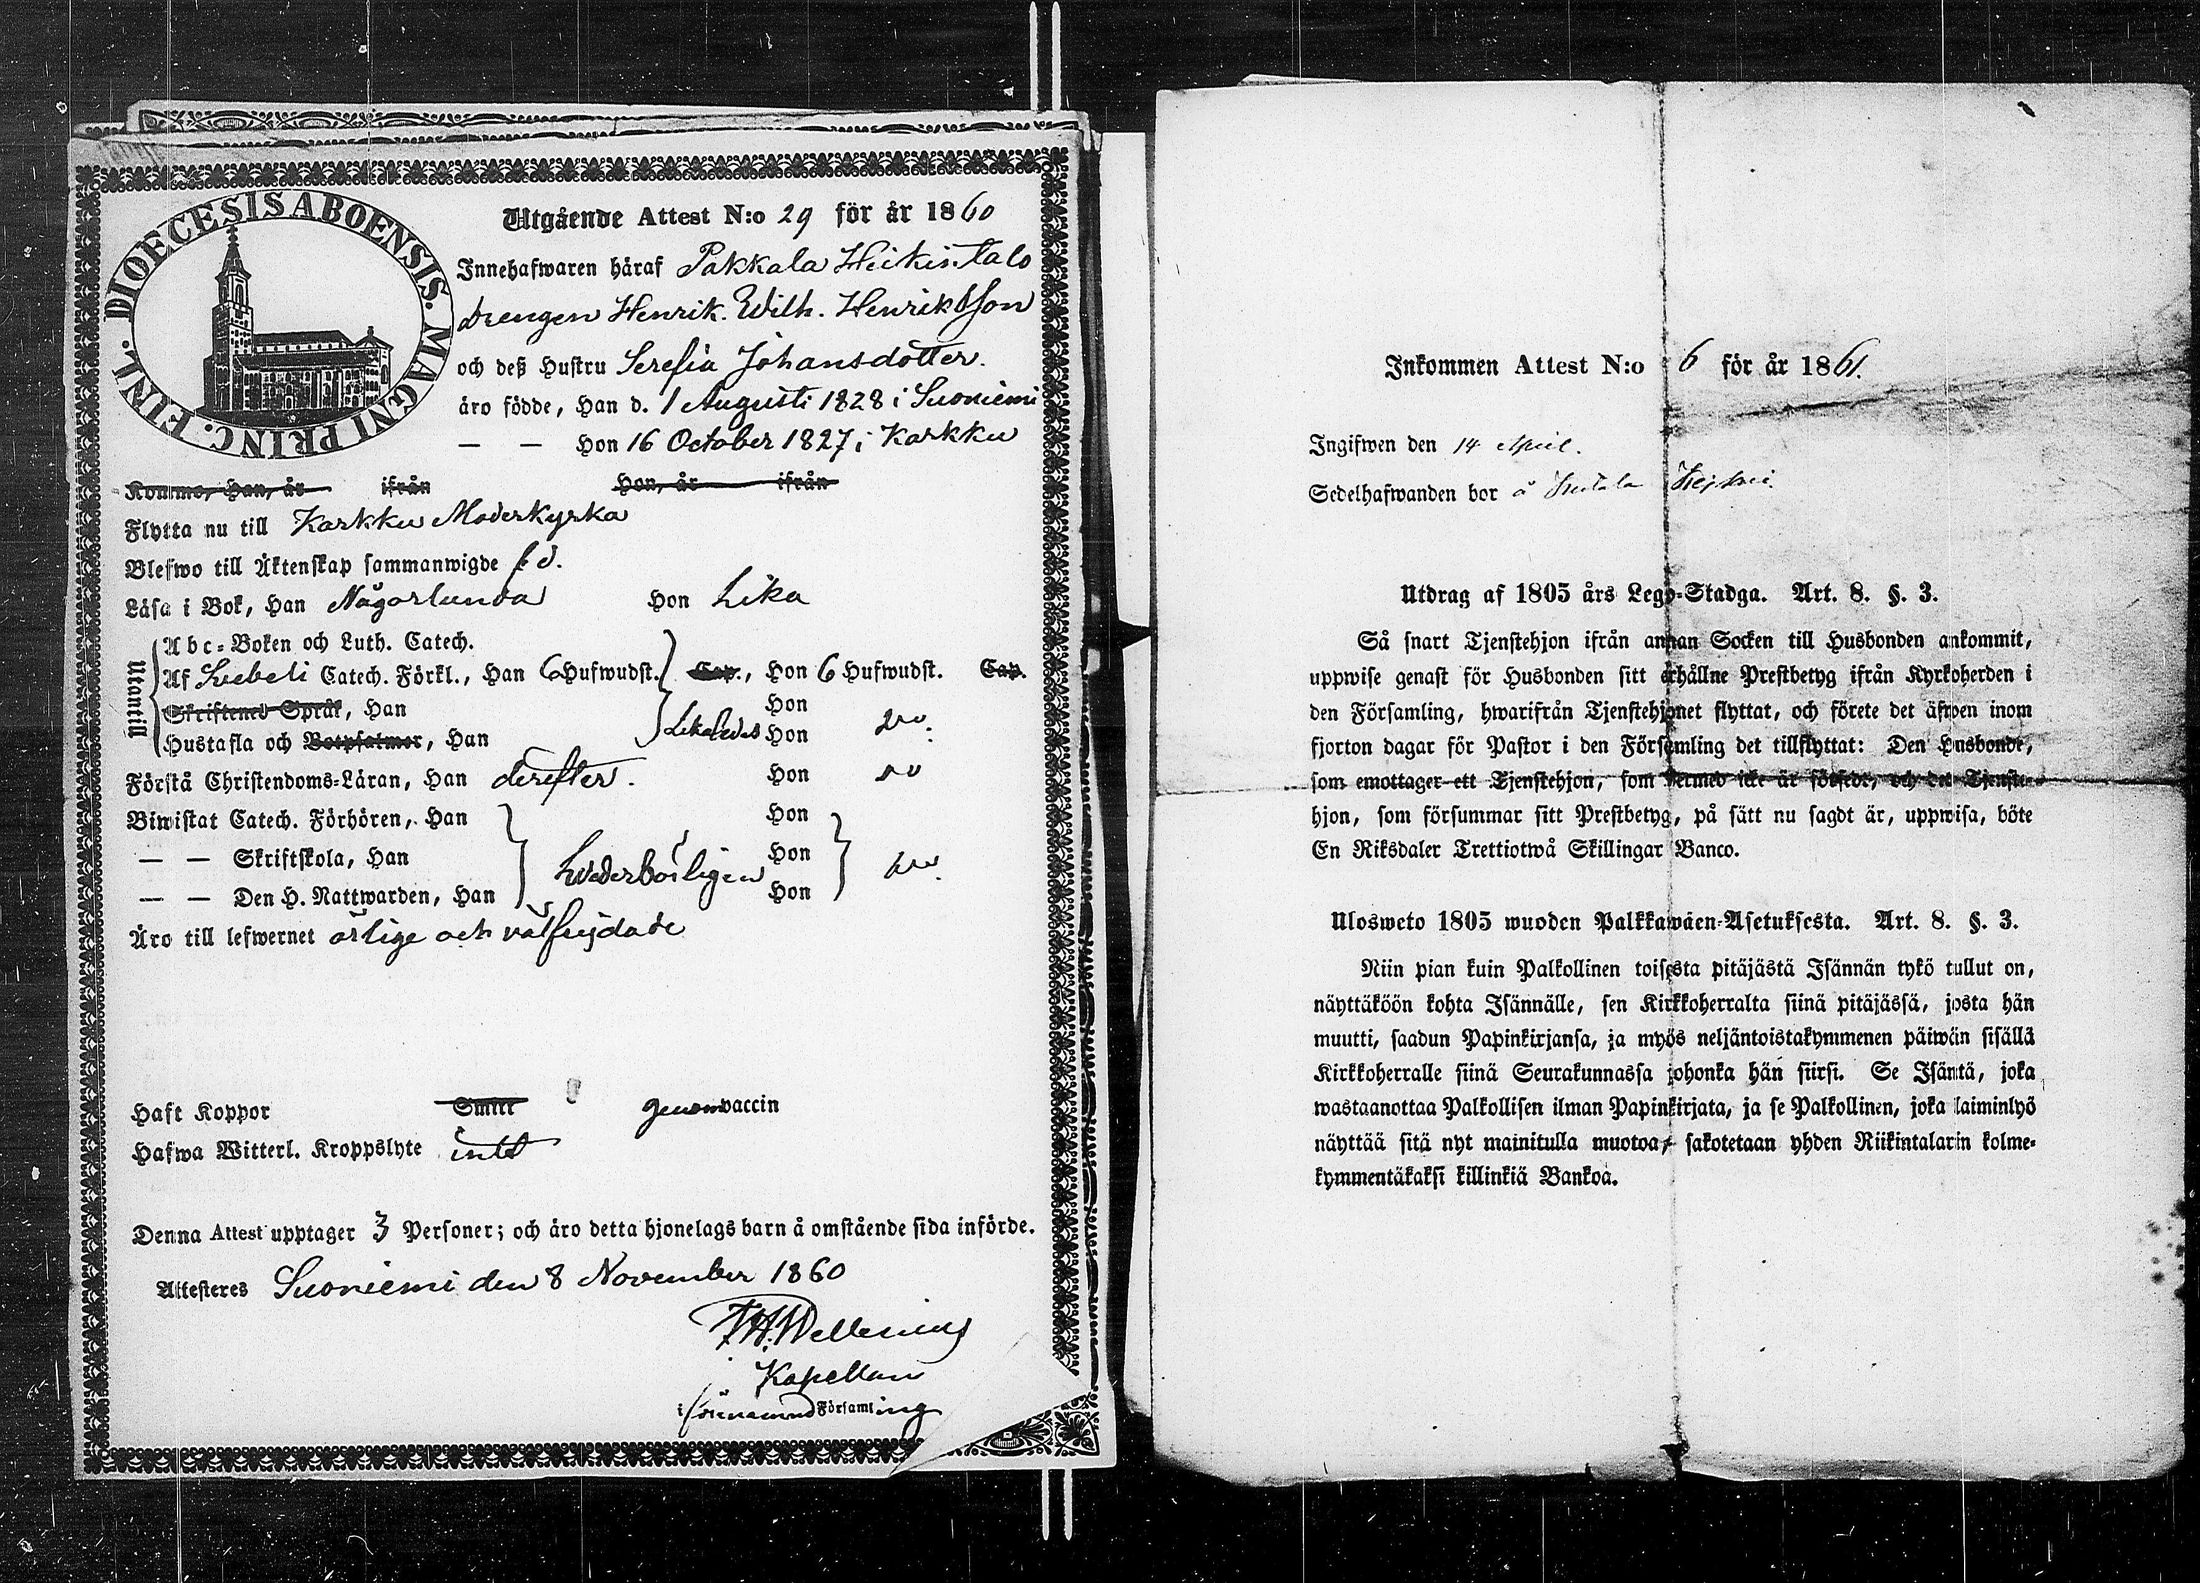 DIOECESIS ABOENSIS. MAGNI PRINC. FINL.
Utgående Attest N:o 29 för år 1860
Innehafwaren häraf Pakkala Heikin talo
Drengen Henrik. Wilh. Henriksson
och deß Hustru Serefia Johansdotter.
äro födde, Han d. 1 Augusti 1828 i Suoniemi
— — Hon 16 October 1827 i Karkku
Kommo, Han, år ifrån Hon, år ifrån
Flytta nu till Karkku Moderkyrka
Blefwo till Äktenskap sammanwigde
Läsa i Bok, Han Någorlunda Hon Lika
Utantill
Abc-Boken och Luth. Catech.
Af Svebeli Catech. Förkl., Han 6 Hufwudst. Cap., Hon 6 Hufwudst. Cap.
Skriftenes Språk, Han Hon
Hustafla och Botpsalmer, Han Likaledes Hon
Förstå Christendoms-Läran, Han derefter. Hon
Biwistat Catech. Förhören, Han Hon
— — Skriftskola, Han Hon
— — Den H. Nattwarden, Han Hon
Äro till lefwernet ärlige och välfrejdade
Haft Koppor Smitt genom vaccin
Hafwa Witterl. Kroppslyte intet
Denna Attest upptager 3 Personer; och äro detta hjonelags barn å omstående sida införde.
Attesteres Suoniemi den 8 November 1860
Kapellan
i förenämnd Församling
Inkommen Attest N:o 6 för år 1861.
Ingifwen den 14 April.
Sedelhafwanden bor å
Utdrag af 1805 års Lego-Stadga. Art. 8. §. 3.
Så snart Tjenstehjon ifrån annan Socken till Husbonden ankommit,
uppwise genast för Husbonden sitt erhållne Prestbetyg ifrån Kyrkoherden i
den Församling, hwarifrån Tjenstehjonet flyttat, och förete det äfwen inom
fjorton dagar för Pastor i den Församling det tillflyttat: Den Husbonde,
som emottager ett Tjenstehjon, som dermed icke är försedt, och det Tjenste-
hjon, som försummar sitt Prestbetyg, på sätt nu sagdt är, uppwisa, böte
En Riksdaler Trettiotwå Skillingar Banco.
Ulosweto 1805 wuoden Palkkawäen-Asetuksesta. Art. 8. §. 3.
Niin pian kuin Palkollinen toisesta pitäjästä Isännän tykö tullut on,
näyttäköön kohta Isännälle, sen Kirkkoherralta siinä pitäjässä, josta hän
muutti, saadun Papinkirjansa, ja myös neljäntoistakymmenen päiwän sisällä
Kirkkoherralle siinä Seurakunnassa johonka hän siirsi. Se Isäntä, joka
wastaanottaa Palkollisen ilman Papinkirjata, ja se Palkollinen, joka laiminlyö
näyttää sitä nyt mainitulla muotoa, sakotetaan yhden Riikintalarin kolme-
kymmentäkaksi killinkiä Bankoa.